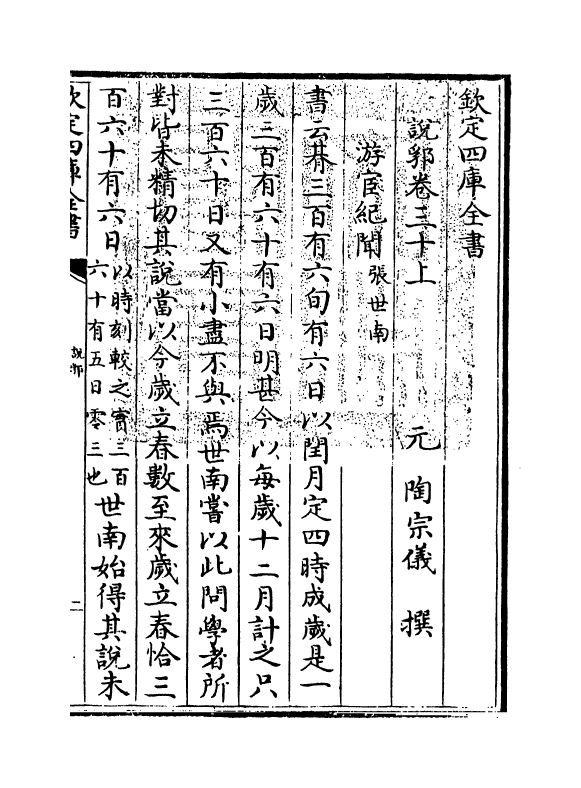 欽定四庫全書
說郛卷三十上
元 陶宗儀 撰
游宦紀聞張世南
書云朞三百有六旬有六日以閏月定四時成歲是一
歲三百有六十有六日明甚今以每歲十二月計之只
三百六十日又有小盡不與焉世南嘗以此問學者所
對皆未精切其說當以今歲立春數至來歲立春恰三
百六十有六日以時刻較之實三百六十有五日零三也世南始得其說未
欽定四庫全書
說郛
二